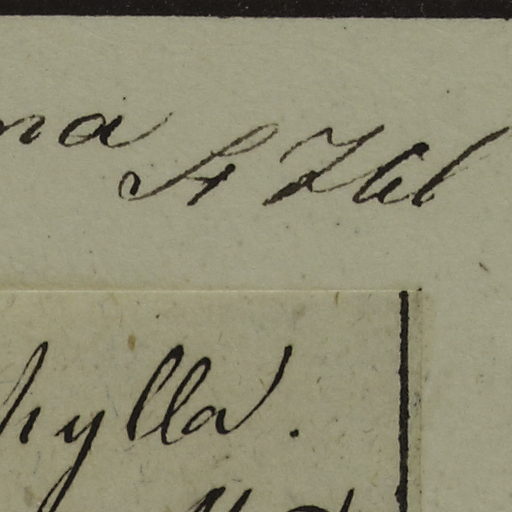 na St Hil
hylla.